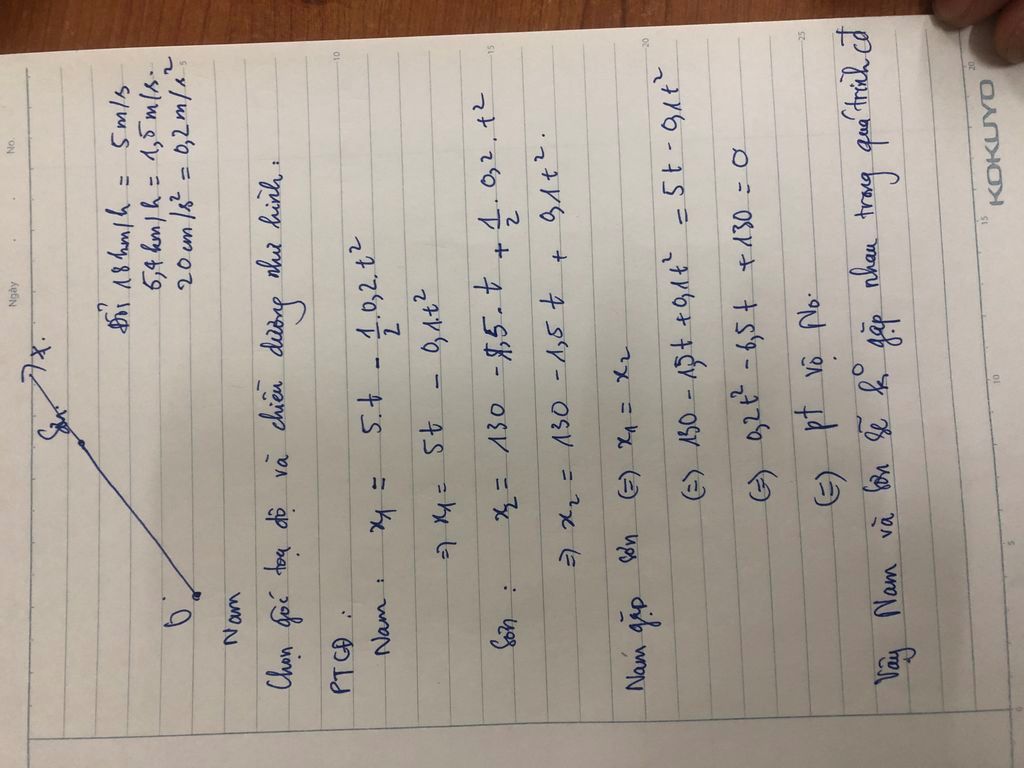 No.
Ngày
Sơn
x.
O
Nam
Đổi 18 km/h = 5 m/s
5,4 km/h = 1,5 m/s.
20 cm/s² = 0,2 m/s²
Chọn gốc toạ độ và chiều dương như hình.
PTCĐ:
Nam: x₁ = 5.t - 1/2.0,2.t²
=> x₁ = 5t - 0,1t²
Sơn: x₂ = 130 - 1,5.t + 1/2.0,2.t²
=> x₂ = 130 - 1,5t + 0,1t².
Nam gặp Sơn (=) x₁ = x₂
(=) 130 - 1,5t + 0,1t² = 5t - 0,1t²
(=) 0,2t² - 6,5t + 130 = 0
(=) pt vô No.
Vậy Nam và Sơn sẽ k° gặp nhau trong quá trình cđ
5
10
15
20
25
5
10
15
20
KOKUYO